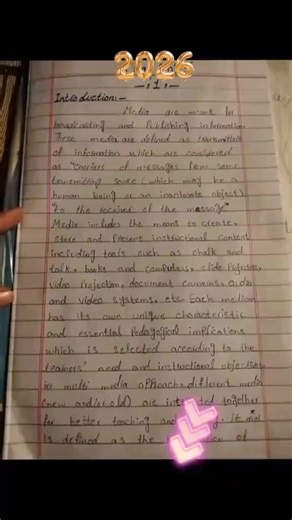 2026
- 1 -
Introduction:-
Media are meant for
broadcasting and Publishing information
These media are defined as transmitters
of information which are considered
as "carriers of messages from some
transmitting (which may be a
human being or an inanimate object)
to the receiver of the message"
Media includes the means to create,
store and Present instructional content
including tools such as chalk and
talk, books and computers, slide Projection,
video Projection, document cameras, audio
and video systems, etc. Each medium
has its own unique characteristic
and essential Pedagogical implications
which is selected according to the
learners' need and instructional objectives
in multi media approach, different media
(new and/or old) are together
for better teaching and it
is defined as the of